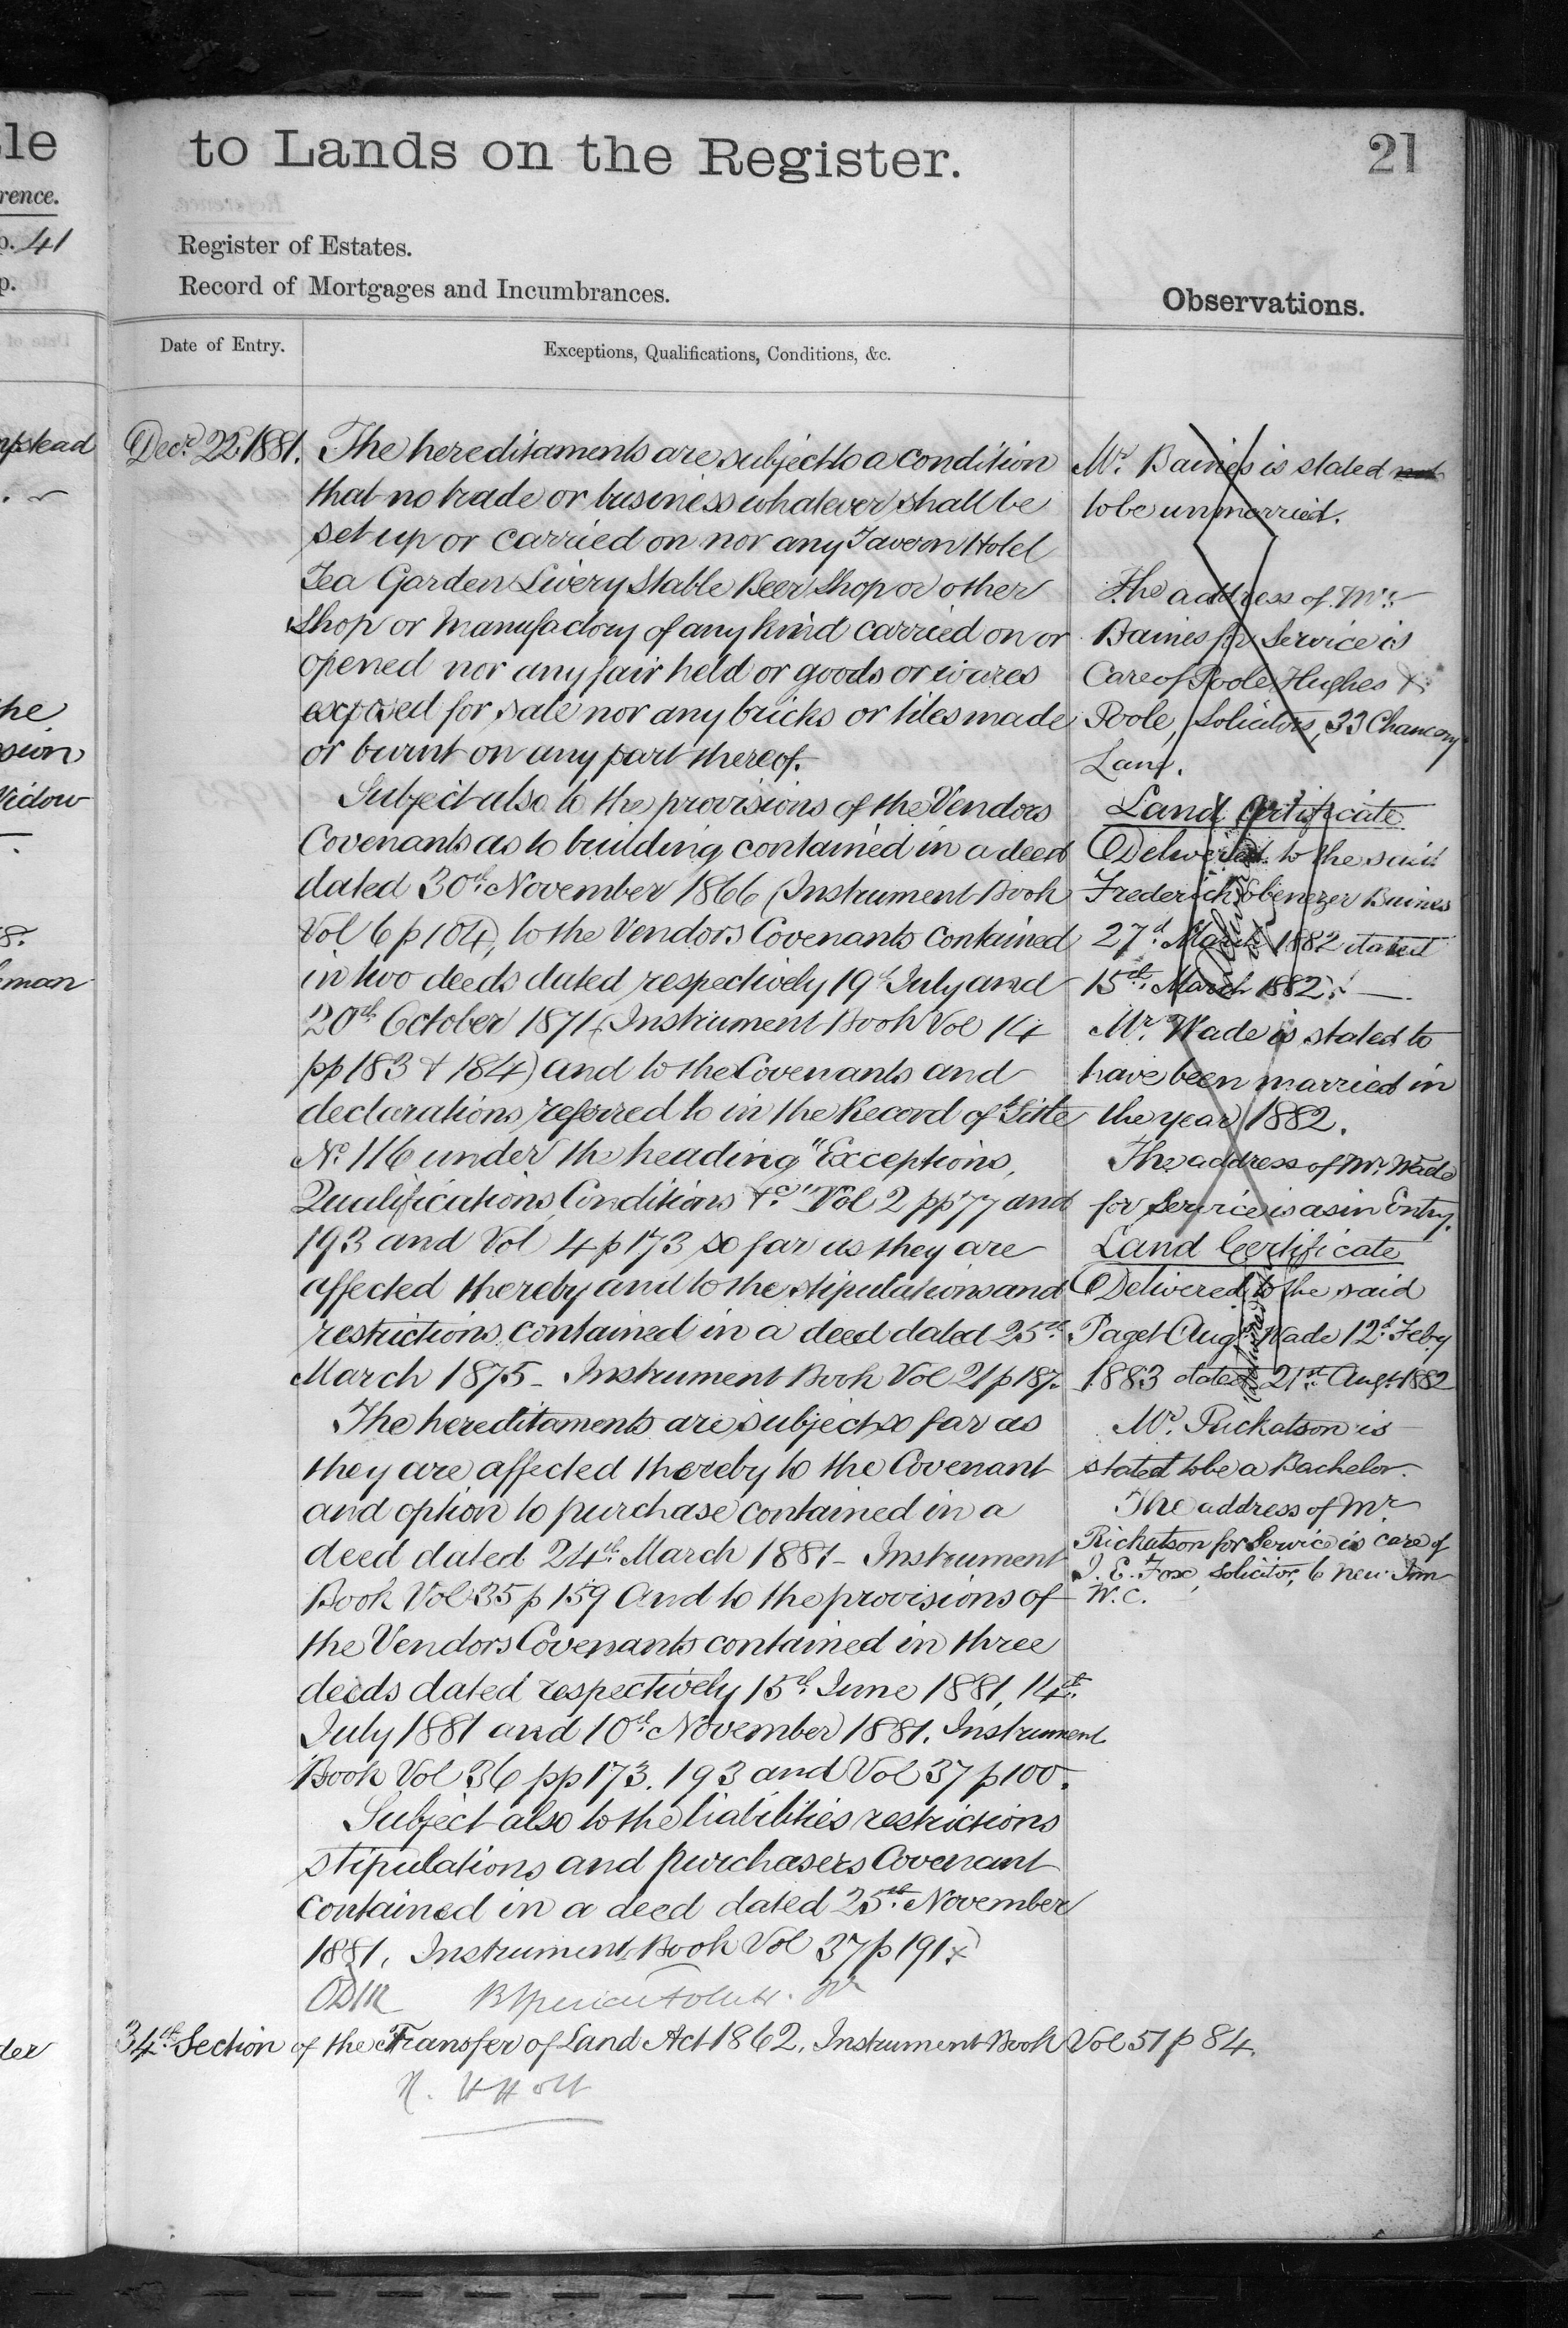 le
to Lands on the Register.
21
rence.
p. 41
p.
Register of Estates.
Record of Mortgages and Incumbrances.
Observations.
Date of Entry.
Exceptions, Qualifications, Conditions, &c.
Decr. 22. 1881.
The hereditaments are subject to a condition
that no trade or business whatever shall be
set up or carried on nor any Tavern Hotel
Tea Garden Livery Stable Beer Shop or other
Shop or Manufactory of any kind carried on or
opened nor any fair held or goods or wares
exposed for sale nor any bricks or tiles made
or burnt on any part thereof.
Subject also to the provisions of the Vendors
Covenants as to building contained in a deed
dated 30th November 1866 (Instrument Book
Vol 6 p 104), to the Vendors Covenants contained
in two deeds dated respectively 19th July and
20th October 1871 (Instrument Book Vol 14
pp 183 & 184) and to the Covenants and
declarations referred to in the Record of Title
No. 116 under the heading "Exceptions,
Qualifications, Conditions &c" Vol 2 pp 77 and
193 and Vol 4 p 173 so far as they are
affected thereby and to the stipulations and
restrictions contained in a deed dated 25th
March 1875 - Instrument Book Vol 21 p 187.
The hereditaments are subject so far as
they are affected thereby to the Covenant
and option to purchase contained in a
deed dated 24th March 1881 - Instrument
Book Vol 35 p 159 And to the provisions of
the Vendors Covenants contained in three
deeds dated respectively 15th June 1881, 14th
July 1881 and 10th November 1881. Instrument
Book Vol 36 pp 173. 193 and Vol 37 p 100.
Subject also to the liabilities restrictions
stipulations and purchasers Covenant
contained in a deed dated 25th November
1881. Instrument Book Vol 37 p 191
34th Section of the Transfer of Land Act 1862. Instrument Book Vol 51 p 84.
Mr. Baines is stated not
to be unmarried.
The address of Mr.
Baines for Service is
Care of Poole Hughes &
Poole, Solicitors, 33 Chancery
Lane.
Land Certificate
Delivered to the said
Frederick Ebenezer Baines
27th March 1882 dated
15th March 1882.
Mr. Wade is stated to
have been married in
the year 1882.
The address of Mr. Wade
for Service is as in Entry.
Land Certificate
Delivered to the said
Paget Aug. Wade 12th Feby
1883 dated 21st Augt 1882
Mr. Rickatson is
stated to be a Bachelor.
The address of Mr.
Rickatson for Service is care of
J. E. Fox, Solicitor, 6 New Inn
W.C.